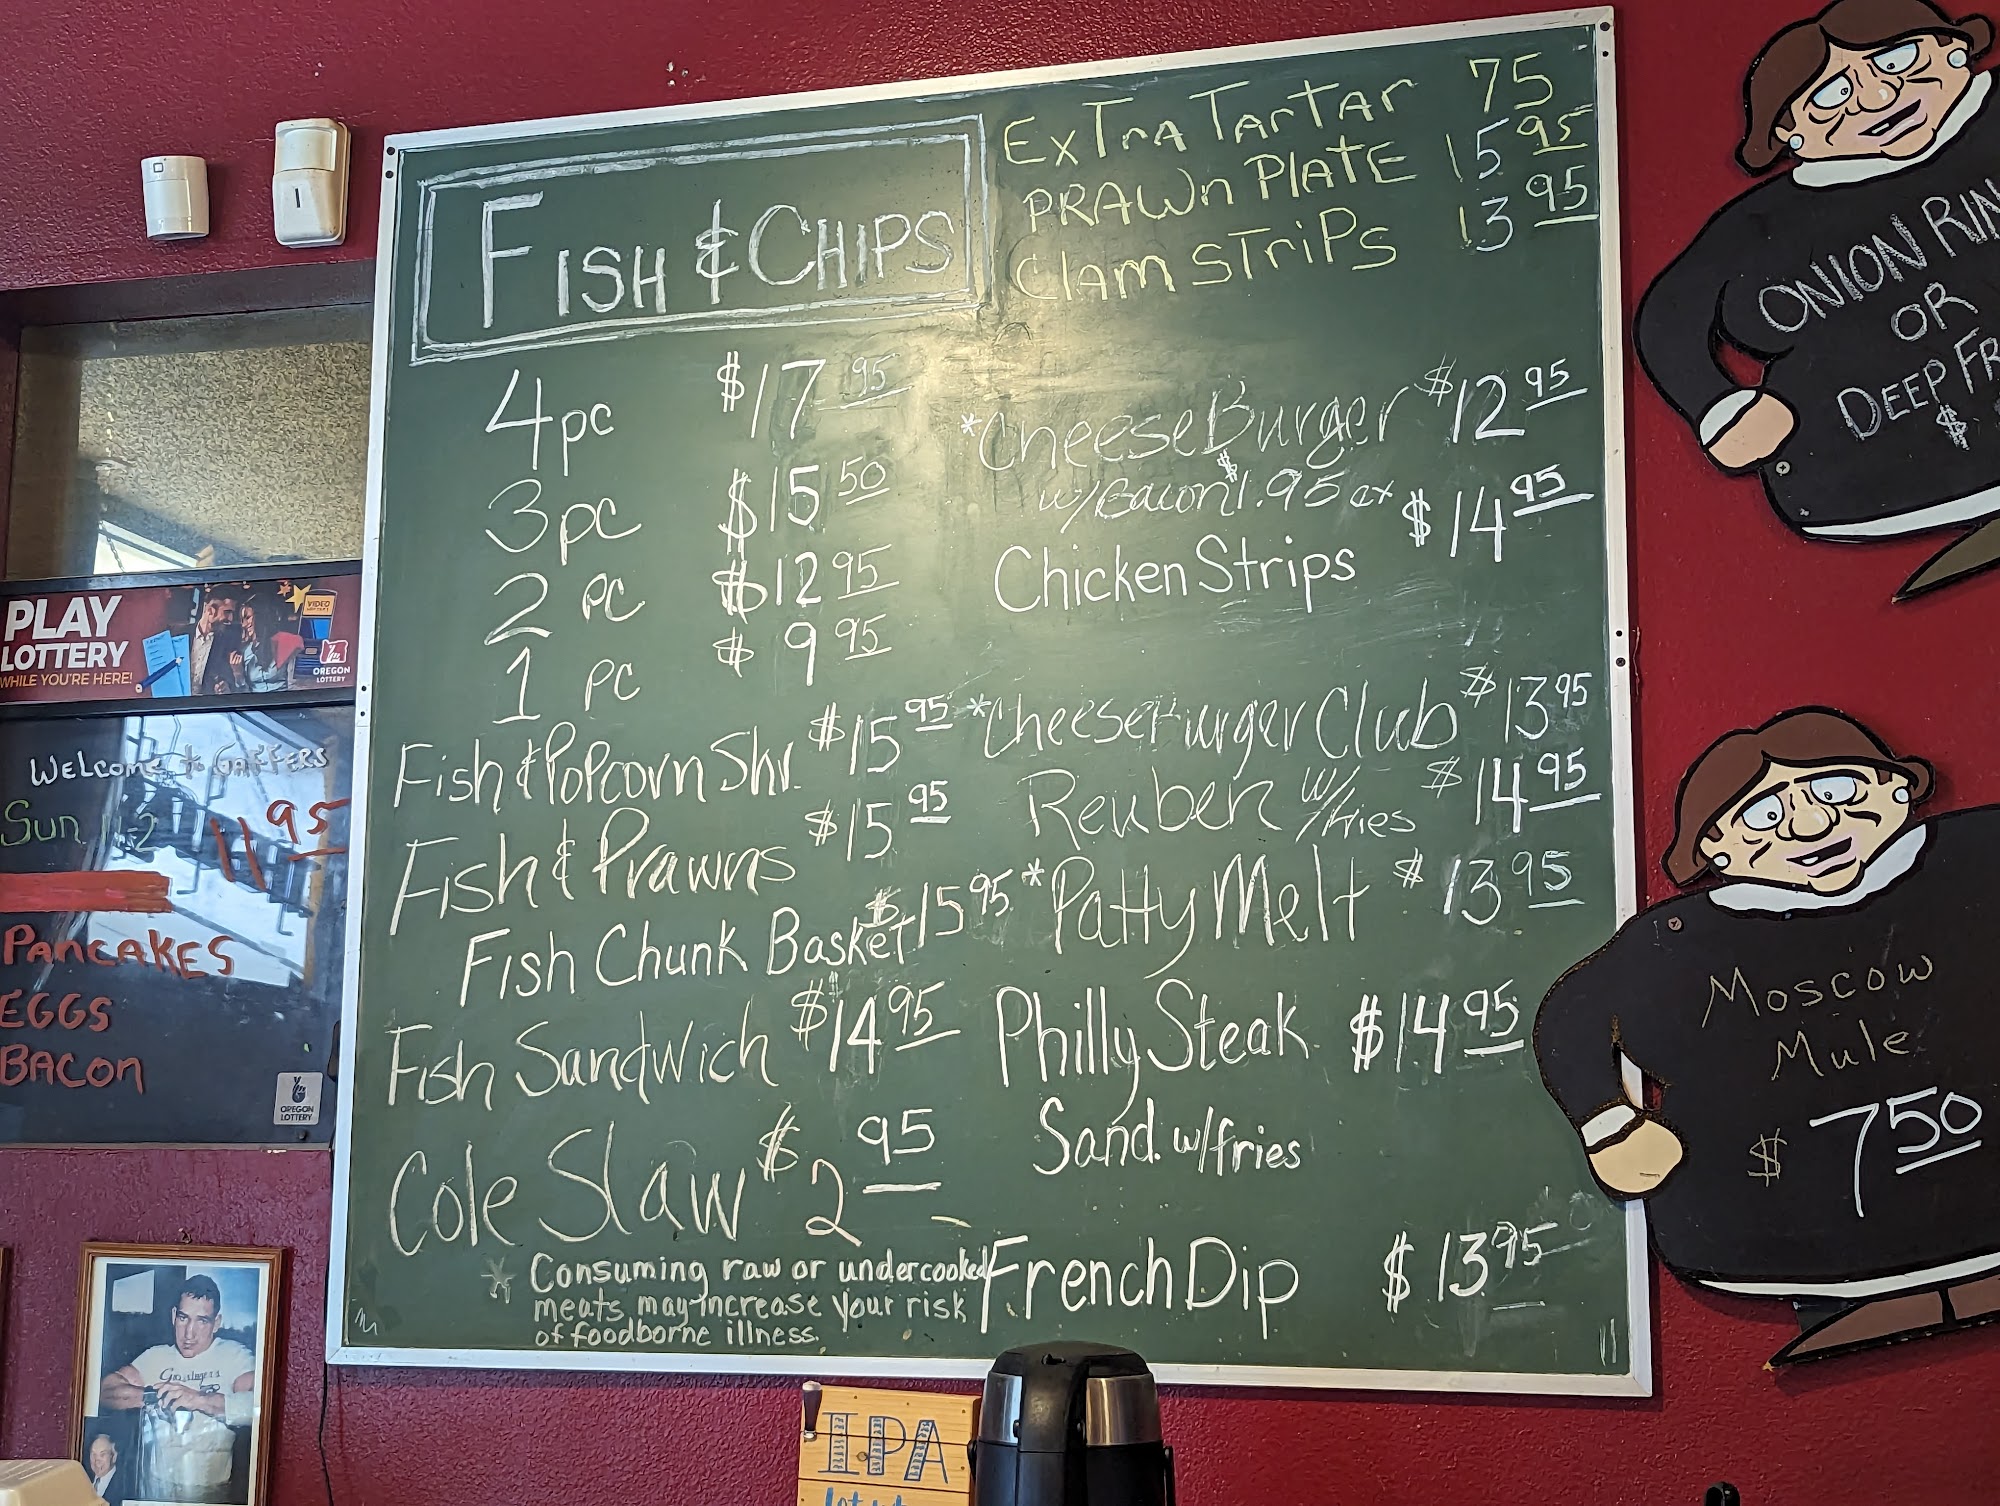 FISH & CHIPS
4pc $17 95
3pc $15 50
2 pc $12 95
1 pc $9 95
Fish & Popcorn Shr. $15 95
Fish & Prawns $15 95
Fish Chunk Basket $15 95
Fish Sandwich $14 95
Cole Slaw $2 95
* Consuming raw or undercooked
meats may increase your risk
of foodborne illness.
ExTra TarTar 75
PRAWn PlATE 15 95
Clam STriPs 13 95
*CheeseBurger $12 95
w/Bacon $1.95 ex
Chicken Strips $14 95
*CheeseBurger Club $13 95
Reuben w/fries $14 95
*Patty Melt $13 95
Philly Steak $14 95
Sand. w/fries
French Dip $13 95
ONION RIN
OR
DEEP FR
$
Moscow
Mule
$7 50
PLAY
LOTTERY
WHILE YOU'RE HERE!
VIDEO
OREGON
LOTTERY
WELCOME to GAFFERS
Sun 11-2 11 95
PANCAKES
EGGS
BACON
OREGON
LOTTERY
IPA